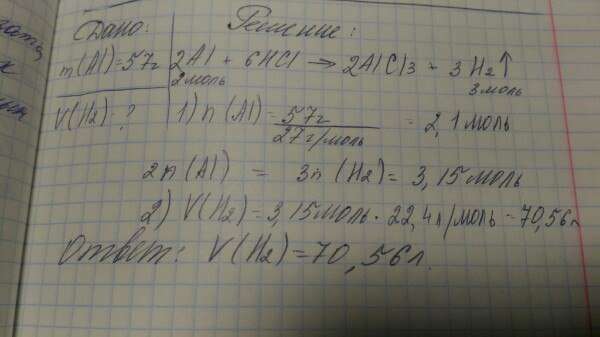 Дано:
Решение:
m(Al)=57г
2Al + 6HCl → 2AlCl3 + 3H2↑
2моль
3моль
V(H2)-?
1) n(Al) = 57г / 27г/моль = 2,1моль
2n(Al) = 3n(H2) = 3,15моль
2) V(H2) = 3,15моль · 22,4л/моль = 70,56л
Ответ: V(H2) = 70,56л.